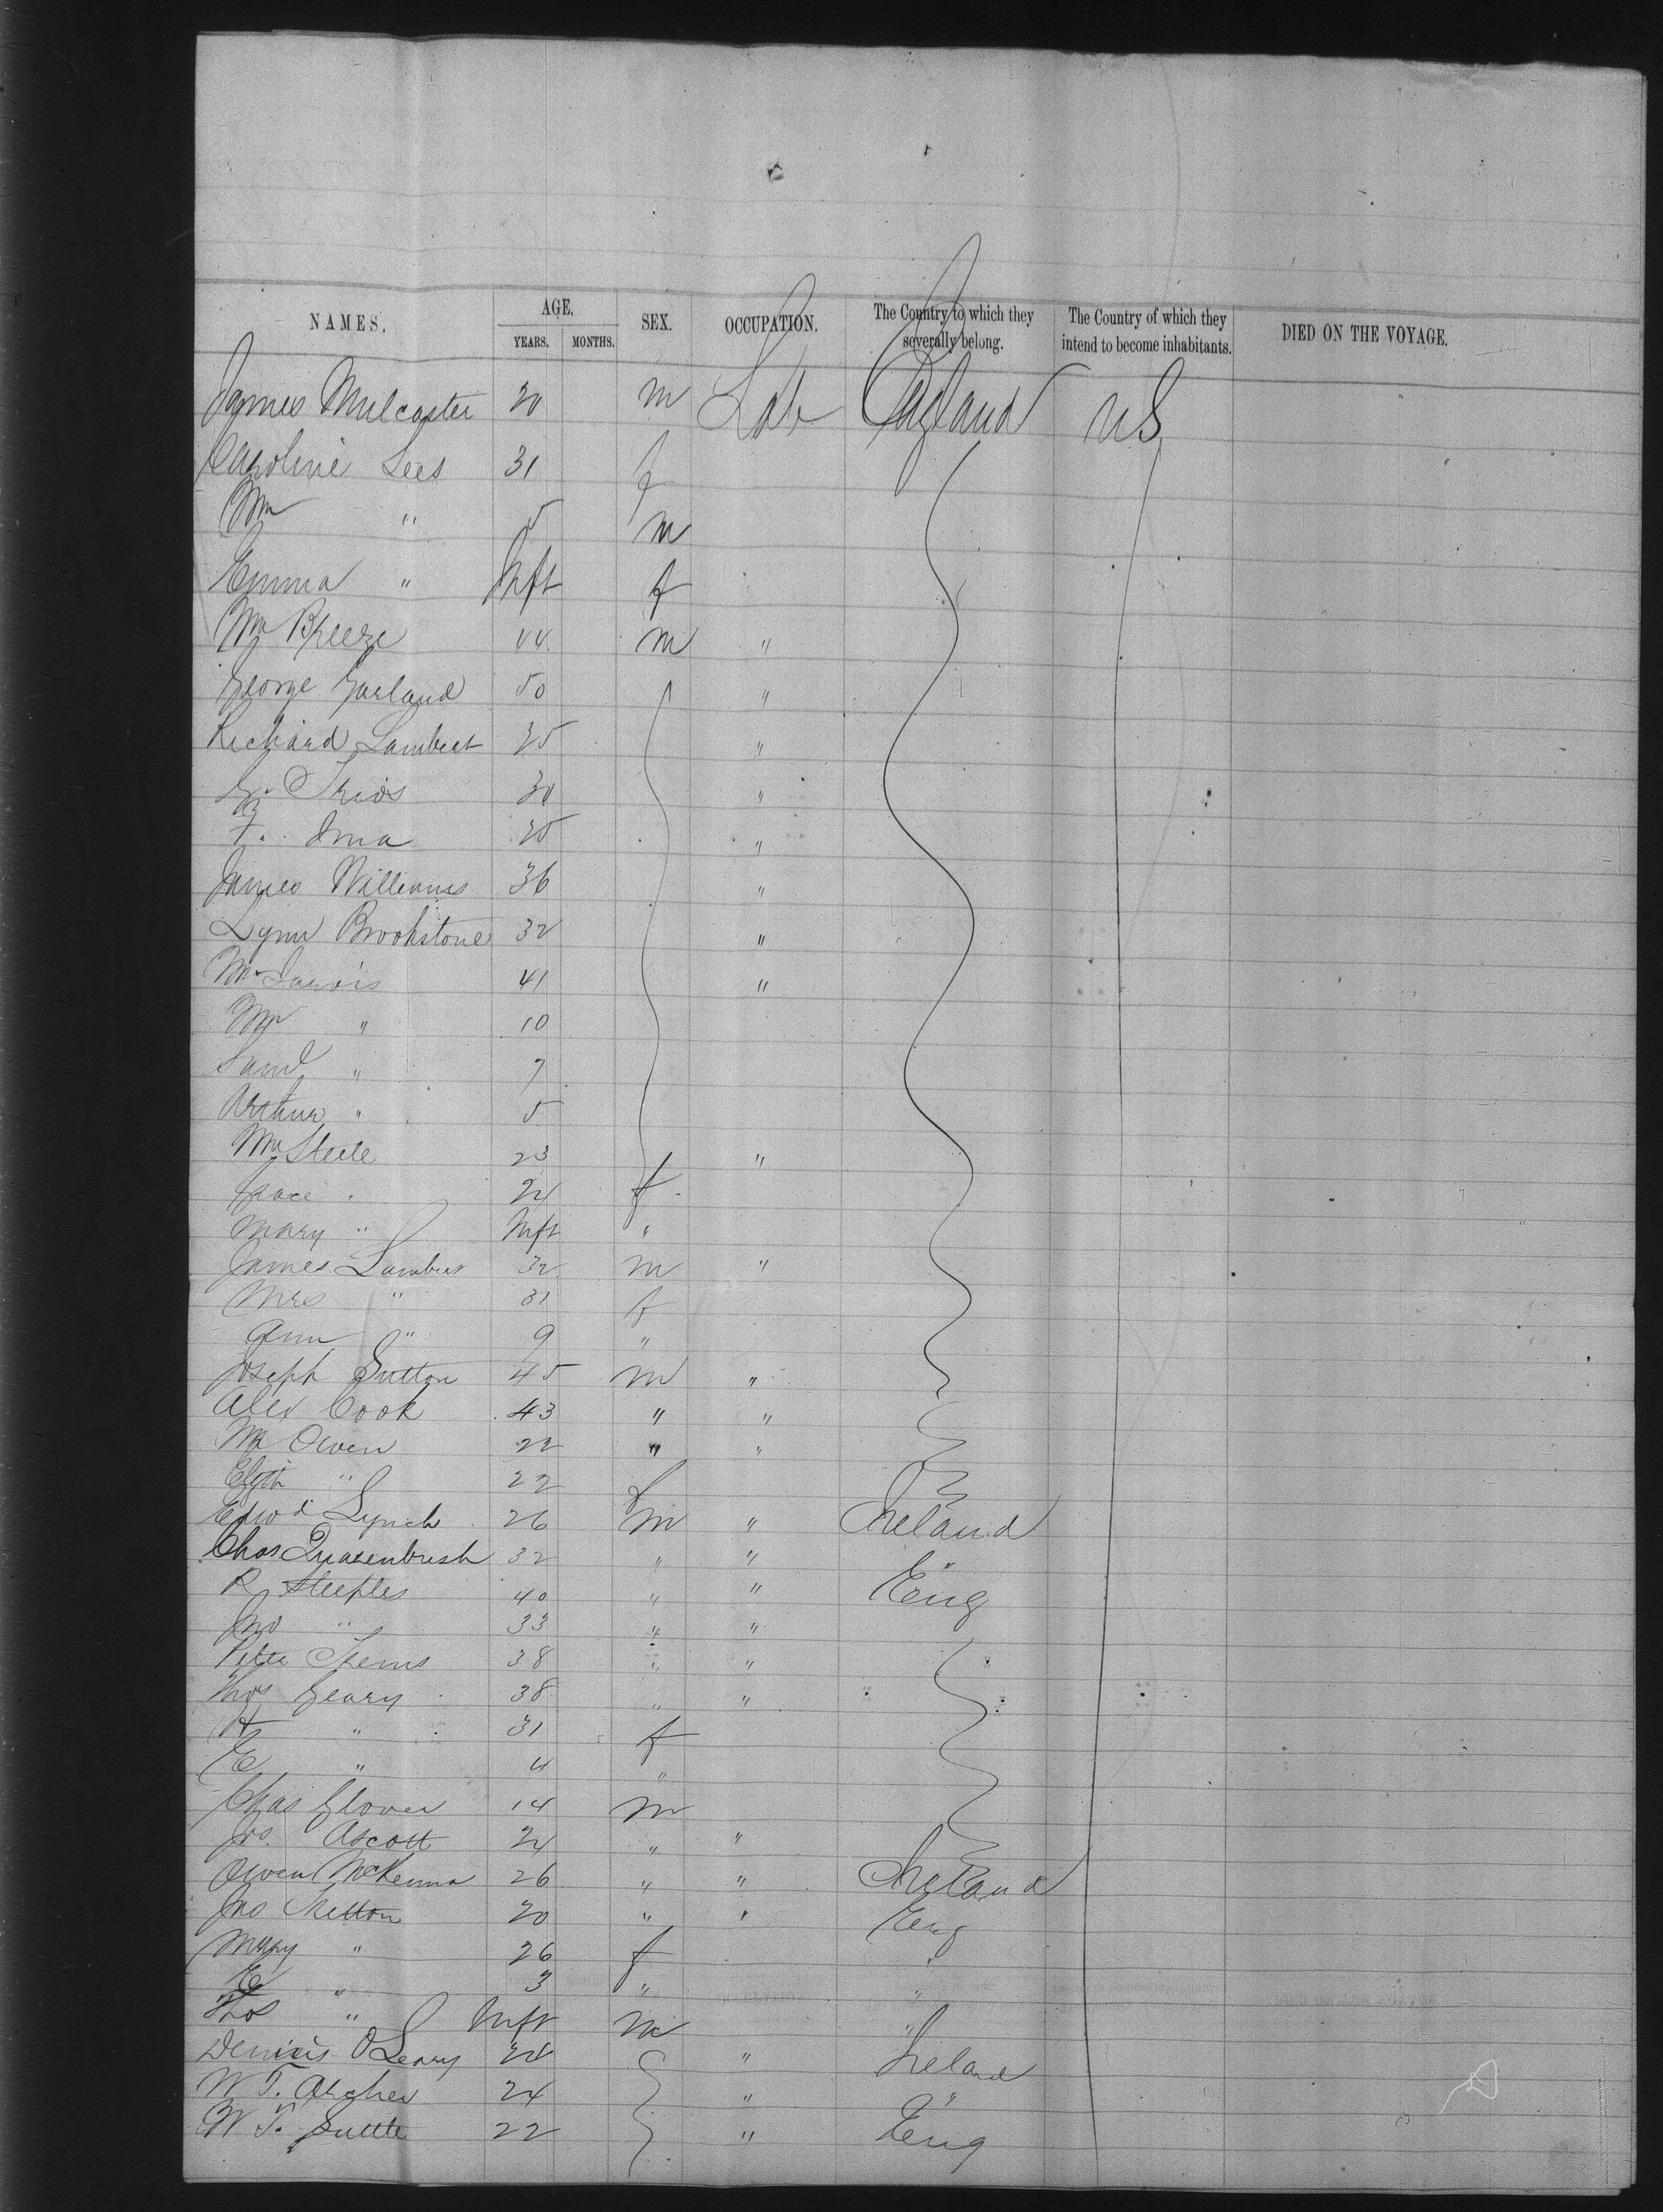 NAMES. AGE. SEX. OCCUPATION. The Country to which they severally belong. The Country of which they intend to become inhabitants. DIED ON THE VOYAGE.
YEARS. MONTHS.
James Mulcaster 20 m Lab England US
Caroline Lees 31 f
Wm " 5 m
Emma " Inft f
Wm Breeze 44 m "
George Garland 50 "
Richard Lambert 25 "
30 "
25 "
James Williams 36 "
Lynn Brookstone 32 "
41 "
Wm " 10
Saml " 7
Arthur " 5
Wm Steele 23 "
Grace " 24 f
Mary " Inft "
James Lambert 32 m "
Mrs " 31 f
Ann " 9 "
Joseph Sutton 45 m "
Alex Cook 43 " "
Wm Owen 22 " "
" 22 f
Edwd Lynch 26 m " Ireland
Chas Quasenbush 32 " " "
R Steeples 40 " " Eng
Jno " 33 " "
Peter 38 " "
Thos Geary 38 " "
" 31 f
E " 4 "
Chas Glover 14 m
Jos. Ascott 24 " "
Owen McKenna 26 " " Ireland
Jno Skelton 20 " " Eng
Mary " 26 f "
E " 3 " "
Thos " Inft m "
Dennis OLeary 24 " Ireland
W T. Archer 24 " "
W T. Suttle 22 " Eng